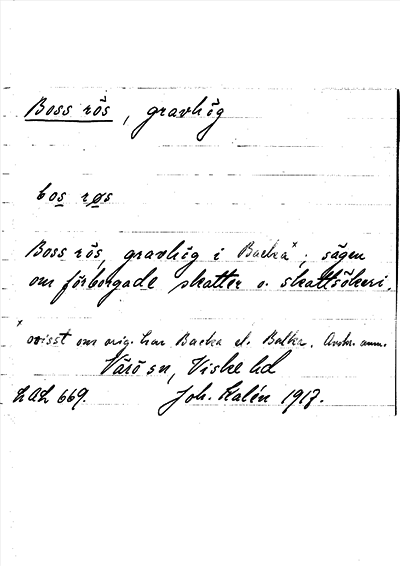 Boss rös, gravhög
bos røs
Boss rös, gravhög i Backa×, sägen
om förborgade skatter o. skattsökeri.
× ovisst om orig. har Backa el. Balka. Avskr. anm.
Värö sn, Viske hd
LAL 669. Joh. Kalén 1917.